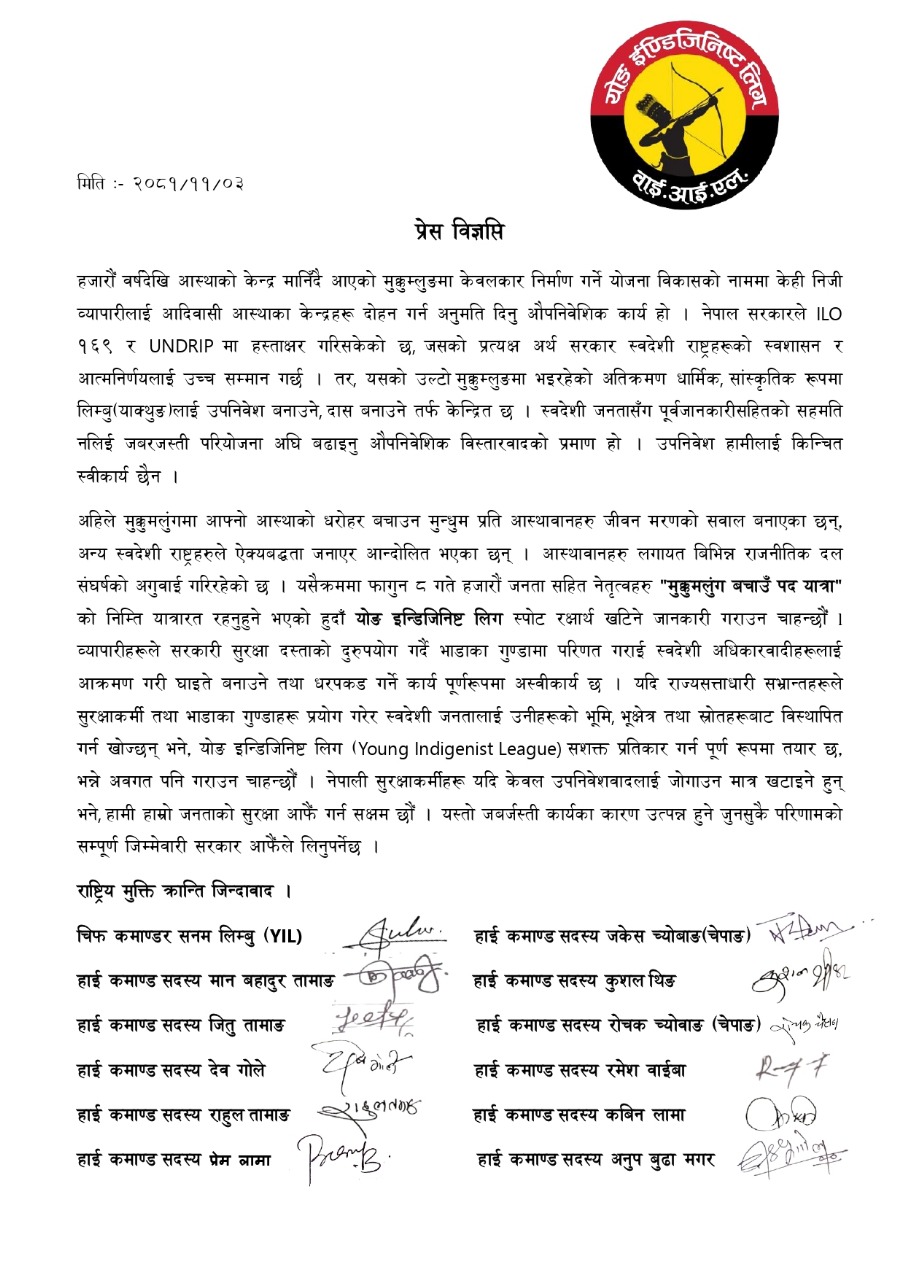 योङ ईण्डिजिनिष्ट लिग
वाई.आई.एल.
मिति :- २०८१/११/०३
प्रेस विज्ञप्ति
हजारौँ वर्षदेखि आस्थाको केन्द्र मानिँदै आएको मुक्कुम्लुङमा केवलकार निर्माण गर्ने योजना विकासको नाममा केही निजी
व्यापारीलाई आदिवासी आस्थाका केन्द्रहरू दोहन गर्न अनुमति दिनु औपनिवेशिक कार्य हो । नेपाल सरकारले ILO
१६९ र UNDRIP मा हस्ताक्षर गरिसकेको छ, जसको प्रत्यक्ष अर्थ सरकार स्वदेशी राष्ट्रहरूको स्वशासन र
आत्मनिर्णयलाई उच्च सम्मान गर्छ । तर, यसको उल्टो मुक्कुम्लुङमा भइरहेको अतिक्रमण धार्मिक, सांस्कृतिक रूपमा
लिम्बु(याक्थुङ)लाई उपनिवेश बनाउने, दास बनाउने तर्फ केन्द्रित छ । स्वदेशी जनतासँग पूर्वजानकारीसहितको सहमति
नलिई जबरजस्ती परियोजना अघि बढाइनु औपनिवेशिक विस्तारवादको प्रमाण हो । उपनिवेश हामीलाई किन्चित
स्वीकार्य छैन ।
अहिले मुक्कुमलुंगमा आफ्नो आस्थाको धरोहर बचाउन मुन्धुम प्रति आस्थावानहरु जीवन मरणको सवाल बनाएका छन्,
अन्य स्वदेशी राष्ट्रहरुले ऐक्यबद्धता जनाएर आन्दोलित भएका छन् । आस्थावानहरु लगायत बिभिन्न राजनीतिक दल
संघर्षको अगुवाई गरिरहेको छ । यसैक्रममा फागुन ८ गते हजारौँ जनता सहित नेतृत्वहरु "मुक्कुमलुंग बचाउँ पद यात्रा"
को निम्ति यात्रारत रहनुहुने भएको हुदाँ योङ इन्डिजिनिष्ट लिग स्पोट रक्षार्थ खटिने जानकारी गराउन चाहन्छौँ ।
व्यापारीहरूले सरकारी सुरक्षा दस्ताको दुरुपयोग गर्दै भाडाका गुण्डामा परिणत गराई स्वदेशी अधिकारवादीहरूलाई
आक्रमण गरी घाइते बनाउने तथा धरपकड गर्ने कार्य पूर्णरूपमा अस्वीकार्य छ । यदि राज्यसत्ताधारी सभ्रान्तहरूले
सुरक्षाकर्मी तथा भाडाका गुण्डाहरू प्रयोग गरेर स्वदेशी जनतालाई उनीहरूको भूमि, भूक्षेत्र तथा स्रोतहरूबाट विस्थापित
गर्न खोज्छन् भने, योङ इन्डिजिनिष्ट लिग (Young Indigenist League) सशक्त प्रतिकार गर्न पूर्ण रूपमा तयार छ,
भन्ने अवगत पनि गराउन चाहन्छौँ । नेपाली सुरक्षाकर्मीहरू यदि केवल उपनिवेशवादलाई जोगाउन मात्र खटाइने हुन्
भने, हामी हाम्रो जनताको सुरक्षा आफैं गर्न सक्षम छौँ । यस्तो जबर्जस्ती कार्यका कारण उत्पन्न हुने जुनसुकै परिणामको
सम्पूर्ण जिम्मेवारी सरकार आफैंले लिनुपर्नेछ ।
राष्ट्रिय मुक्ति क्रान्ति जिन्दावाद ।
चिफ कमाण्डर सनम लिम्बु (YIL)
हाई कमाण्ड सदस्य जकेस च्योबाङ(चेपाङ)
हाई कमाण्ड सदस्य मान बहादुर तामाङ
हाई कमाण्ड सदस्य कुशल थिङ
हाई कमाण्ड सदस्य जितु तामाङ
हाई कमाण्ड सदस्य रोचक च्योवाङ (चेपाङ)
हाई कमाण्ड सदस्य देव गोले
हाई कमाण्ड सदस्य रमेश वाईबा
हाई कमाण्ड सदस्य राहुल तामाङ
हाई कमाण्ड सदस्य कबिन लामा
हाई कमाण्ड सदस्य प्रेम लामा
हाई कमाण्ड सदस्य अनुप बुढा मगर